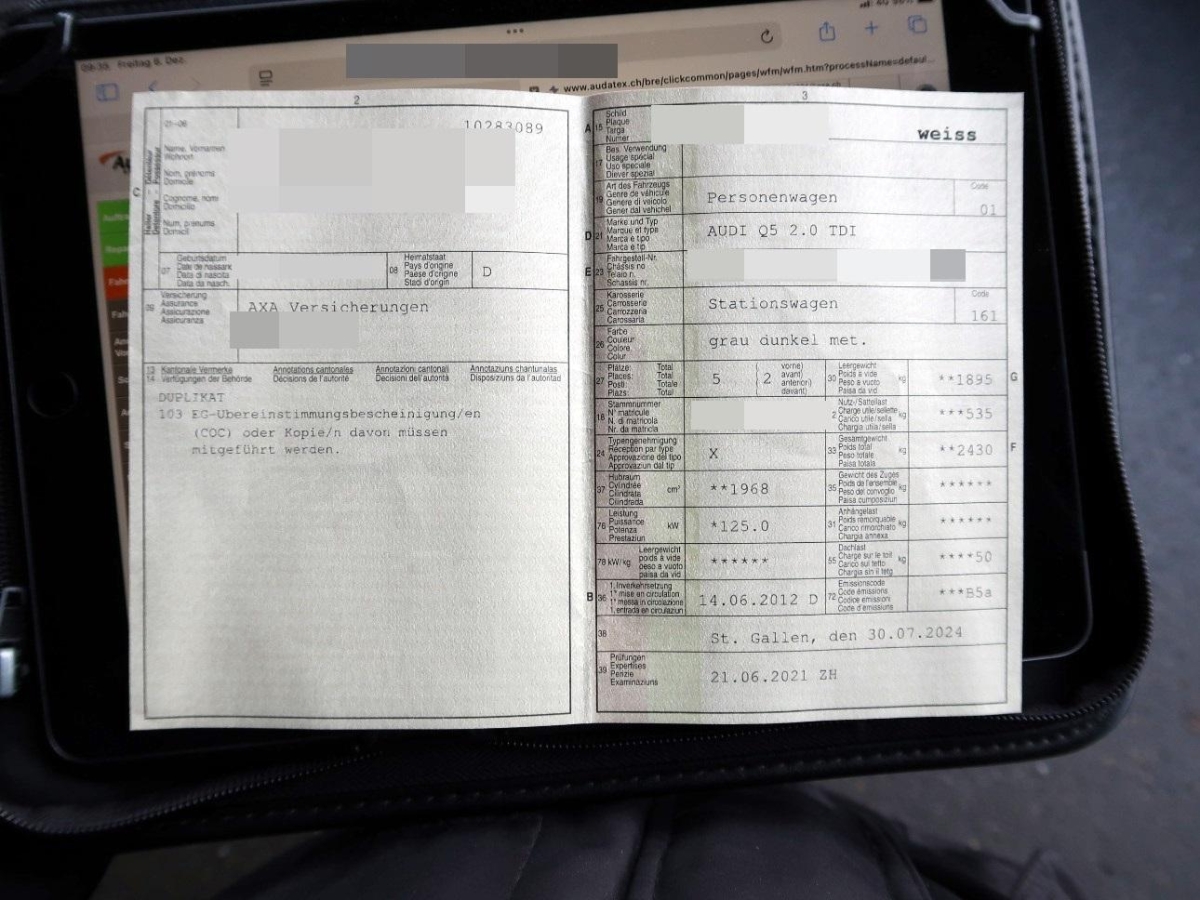 09:39 Freitag 8. Dez.
www.audatex.ch/bre/clickcommon/pages/wfm/wfm.htm?processName=defaul...
2
21-06
10283089
C
Name, Vornamen
Wohnort
Nom, prénoms
Domicile
Cognome, nomi
Domicilio
Num, prenums
Domicil
07
Geburtsdatum
Date de naissance
Data di nascita
Data da nasch.
08
Heimatstaat
Pays d'origine
Paese d'origine
Stadi d'origin
D
09
Versicherung
Assurance
Assicurazione
Assicuranza
AXA Versicherungen
13 Kantonale Vermerke Annotations cantonales Annotazioni cantonali Annotaziuns chantunalas
14 Verfügungen der Behörde Décisions de l'autorité Decisioni dell'autorità Disposiziuns da l'autoritad
DUPLIKAT
103 EG-Übereinstimmungsbescheinigung/en
(COC) oder Kopie/n davon müssen
mitgeführt werden.
3
A 15
Schild
Plaque
Targa
Numer
weiss
17
Bes. Verwendung
Usage spécial
Uso speciale
Diever spezial
19
Art des Fahrzeugs
Genre de véhicule
Genere di veicolo
Gener dal vehichel
Personenwagen
Code
01
D 21
Marke und Typ
Marque et type
Marca e tipo
Marca e tip
AUDI Q5 2.0 TDI
E 23
Fahrgestell-Nr.
Châssis no
Telaio n.
Schassis nr.
25
Karosserie
Carrosserie
Carrozzeria
Carossaria
Stationswagen
Code
161
26
Farbe
Couleur
Colore
Colur
grau dunkel met.
27
Plätze: Total
Places: Total
Posti: Totale
Plazs: Total
5
(2
vorne)
avant)
anteriori)
davant)
30
Leergewicht
Poids à vide
Peso a vuoto
Paisa da vid
kg
**1895
G
18
Stammnummer
N° matricule
N. di matricola
Nr. da matricla
Nutz-/Sattellast
Charge utile/sellette
Carico utile/sella
Chargia utila/sella
kg
***535
24
Typengenehmigung
Réception par type
Approvazione del tipo
Approvaziun dal tip
X
33
Gesamtgewicht
Poids total
Peso totale
Paisa totala
kg
**2430
F
37
Hubraum
Cylindrée
Cilindrata
Cilindrada
cm³
**1968
35
Gewicht des Zuges
Poids de l'ensemble
Peso del convoglio
Paisa cumposiziun
kg
******
76
Leistung
Puissance
Potenza
Prestaziun
kW
*125.0
31
Anhängelast
Poids remorquable
Carico rimorchiato
Chargia annexa
kg
******
78 kW/kg
Leergewicht
poids à vide
peso a vuoto
paisa da vid
******
55
Dachlast
Charge sur le toit
Carico sul tetto
Chargia sin il tetg
kg
****50
B 36
1. Inverkehrsetzung
1re mise en circulation
1a messa in circolazione
1. entrada en circulaziun
14.06.2012 D
72
Emissionscode
Code émissions
Codice emissioni
Code d'emissiuns
***B5a
38
St. Gallen, den 30.07.2024
39
Prüfungen
Expertises
Perizie
Examinaziuns
21.06.2021 ZH